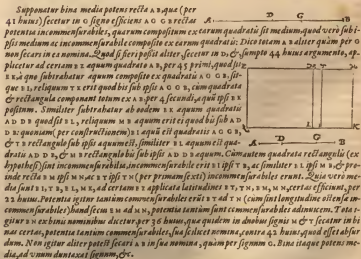 Supponatur bina media potens recta A B, quæ (per
41 huius) secetur in G signo efficiens A G G B rectas
potentia incommensurabiles, quarum compositum ex earum quadratis sit medium, quod vero sub i-
psis medium ac incommensurabile composito ex earum quadratis: Dico totam A B aliter quàm per G
non secari in ea nomina. Quod si fieri possit aliter, secetur in D, & sumpto 44 huius argumento, ap-
plicetur ad certam E Z æquum quadrato A B, per 45 primi, quod sit
E K, à quo subtrahatur æquum composito ex quadratis A G G B, sit-
que E I, reliquum T K erit quod bis sub ipsis A G G B, cum quadrata
& rectangula componant totum ex A B per 4 secundi, atque ipsi E K
positum. Similiter subtrahatur ab eodem E K æquum quadratis
A D D B quod sit E L, reliquum M K æquum erit ei quod bis sub A D
D B: quoniam (per constructionem) E I æquum est quadratis A G G B,
& T K rectangulo sub ipsis æquum est, similiter E L æquum est qua-
dratis A D D B, & M K rectangulo bis sub ipsis A D D B æquum. Cùm autem quadrata rectangulis (ex
hypothesi) sint incommensurabilia, incommensurabile erit E I ipsi T K, ac similiter E L ipsi M K, & pro-
inde recta E M ipsi M N, & E T ipsi T N (per primam sexti) incommensurabiles erunt. Quia vero me-
dia sunt E I, T K, E L, M K, ad certam E Z applicata latitudines E T, T N, E M, M N, certas efficiunt, per
22 huius. Potentia igitur tantùm commensurabiles erunt E T ad T N (cùm sint longitudine ostensæ in-
commensurabiles) haud secus E M ad M N, potentia tantùm sunt commensurabiles adinuicem. Tota i-
gitur E N ex binis nominibus dicetur, per 36 huius, quæ quidem in duobus signis M & T secatur in bi-
nas certas, potentia tantùm commensurabiles, sua scilicet nomina, contra 42 huius, quod est absur-
dum. Non igitur aliter potest secari A B in sua nomina, quàm per signum G. Bina itaque potens me-
dia, ad vnum duntaxat signum, &c.
A D G B
E M T N
Z L I K
A D G B